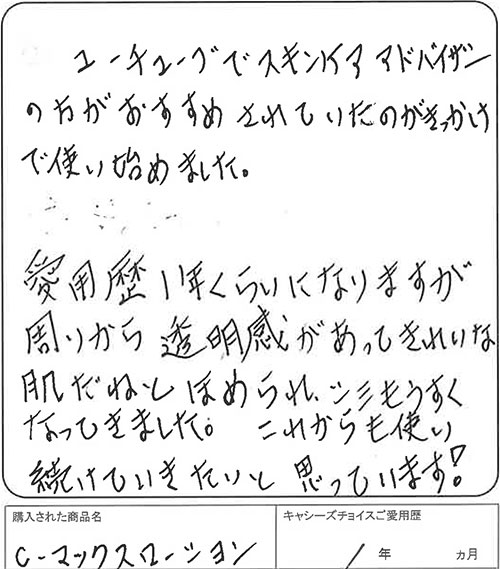 ユーチューブでスキンケアアドバイザー
の方がおすすめされていたのがきっかけ
で使い始めました。
愛用歴1年くらいになりますが
周りから透明感があってきれいな
肌だねとほめられ、シミもうすく
なってきました。これからも使い
続けていきたいと思っています!
購入された商品名
キャシーズチョイスご愛用歴
C-マックスローション
1年 ヵ月